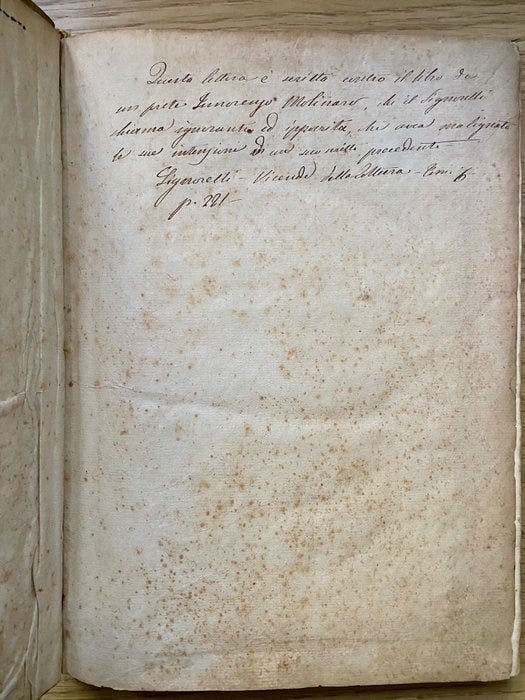 Questa lettera è scritta contro il libro di
un prete Innocenzo Molinaro, che il Signorelli
chiama ignorante ed ipocrita, che avea malignato
le sue intenzioni in un suo scritto precedente
Signorelli - Vicende della Coltura - Tom. 6
p. 221 -